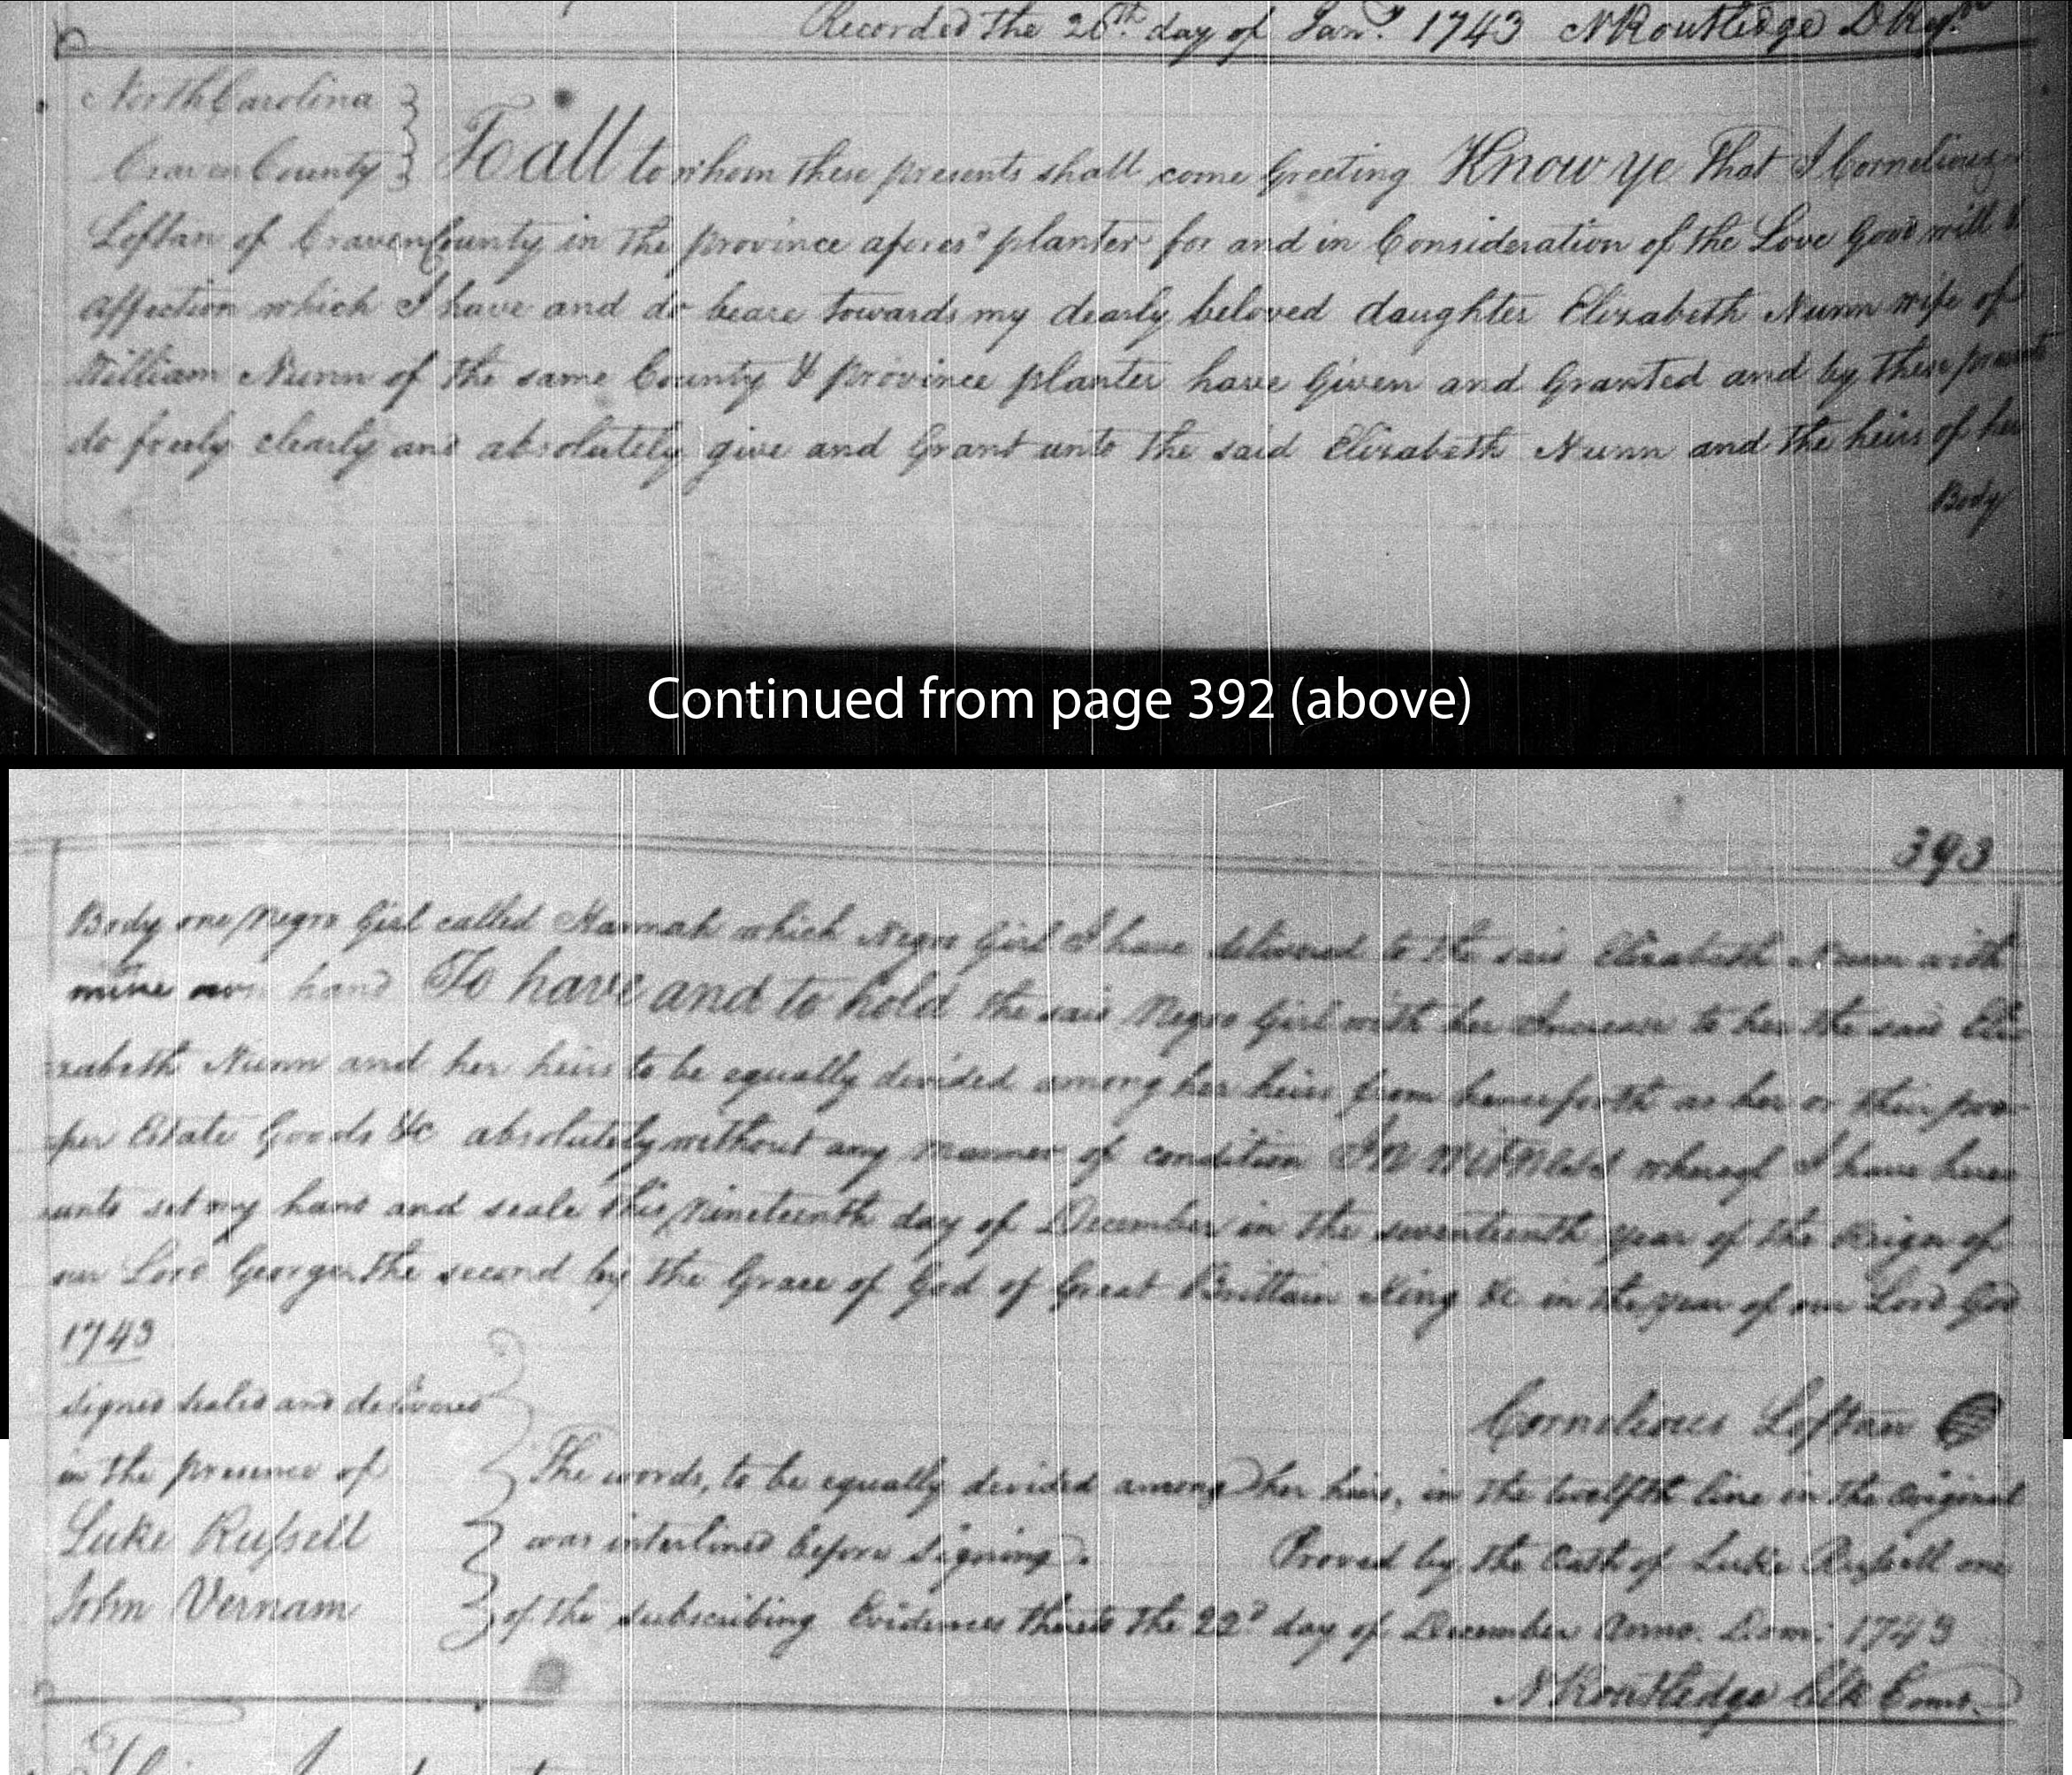 Recorded the 26th. day of Janry. 1743 N Routledge D Regr.
North Carolina
Craven County
To all to whom these presents shall come Greeting Know ye That I Cornelious
Loftan of Craven County in the province aforesd planter for and in Consideration of the Love Good will &
affection which I have and do beare towards my dearly beloved daughter Elizabeth Nunn wife of
William Nunn of the same County & province planter have Given and Granted and by these presents
do freely clearly and absolutely give and Grant unto the said Elizabeth Nunn and the heirs of her
Body
Continued from page 392 (above)
393
Body one Negro Girl called Hannah which Negro Girl I have delivered to the said Elizabeth Nunn with
mine own hand To have and to hold the said Negro Girl with her Increase to her the said Eliz
zabeth Nunn and her heirs to be equally devided among her heirs from henceforth as her or their pro-
per Estate Goods &c absolutely without any manner of condition In witness whereof I have here
unto set my hand and seale this Nineteenth day of December in the seventeenth year of the Reign of
our Lord George the second by the Grace of God of Great Brittain King &c in the year of our Lord God
1743
signed sealed and delivered
in the presence of
Luke Russell
John Vernam
Cornelious Loftan
The words, to be equally devided among her heirs, in the twelfth line in the original
was interlined before signing.
Proved by the Oath of Luke Russell one
of the subscribing Evidences thereto the 22d day of December Anno. Dom: 1743
N Routledge Clk Court.